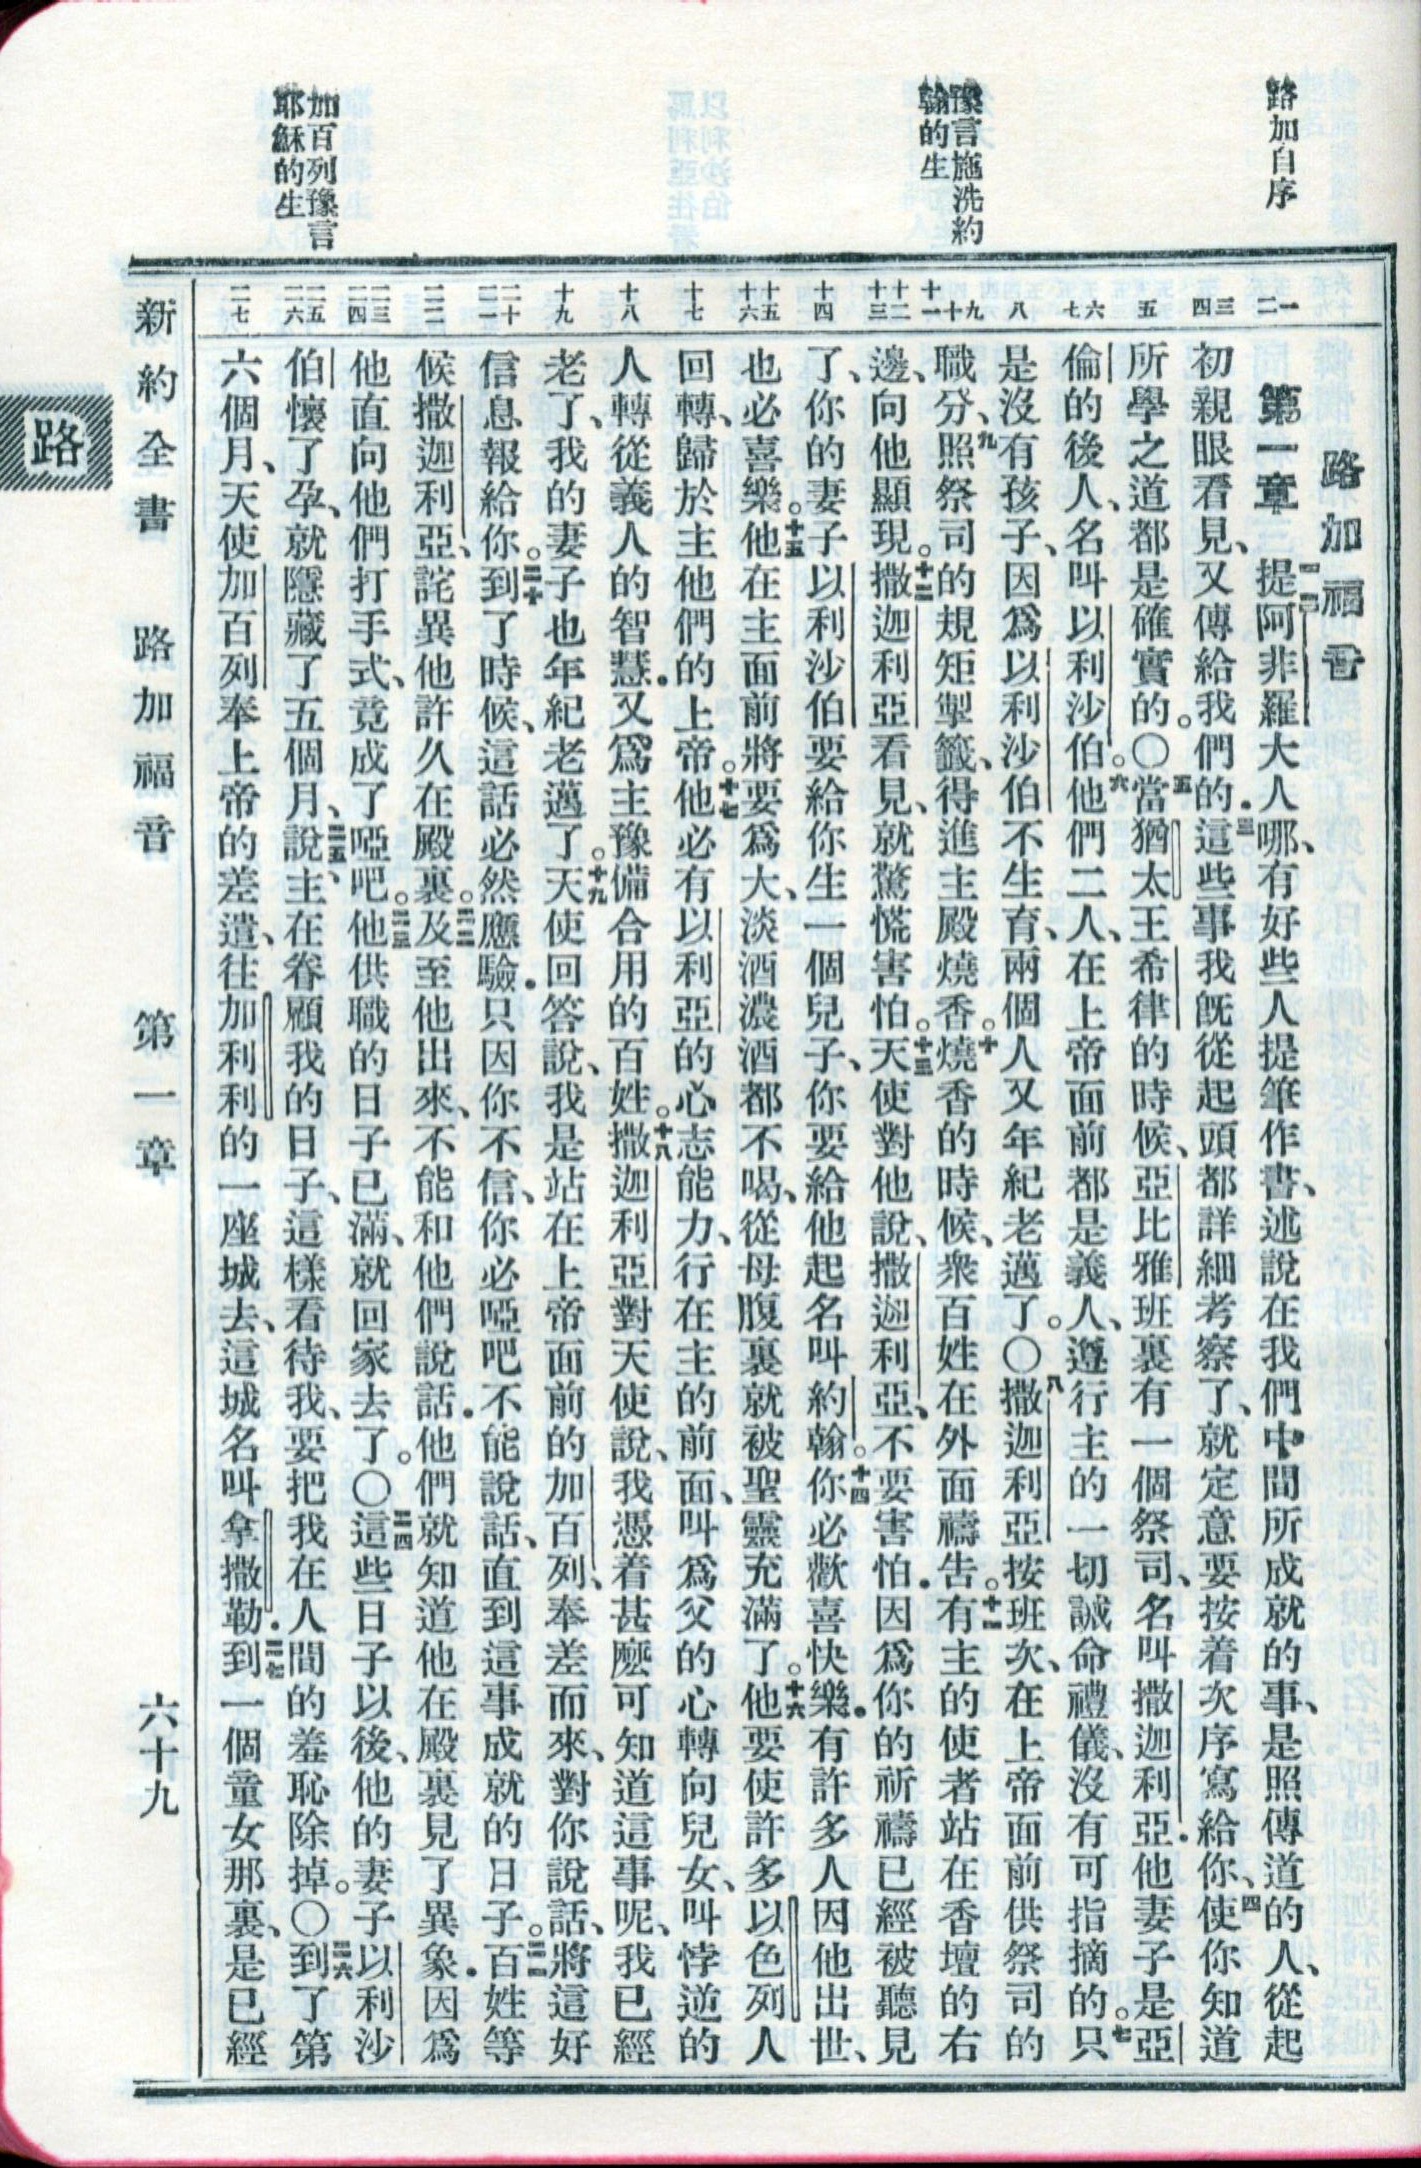 路加自序
豫言施洗約
翰的生
加百列豫言
耶穌的生
路加福音
一 二
三 四
五
六 七
八
九 十 十一
十二 十三
十四
十五 十六
十七
十八
十九
二十 二一
二二
二三 二四
二五 二六
二七
第一章 一二提阿非羅大人哪、有好些人提筆作書、述說在我們中間所成就的事、是照傳道的人、從起
初親眼看見、又傳給我們的．三這些事我旣從起頭都詳細考察了、就定意要按着次序寫給你、四使你知道
所學之道都是確實的。〇五當猶太王希律的時候、亞比雅班裏有一個祭司、名叫撒迦利亞．他妻子是亞
倫的後人、名叫以利沙伯。六他們二人、在上帝面前都是義人、遵行主的一切誡命禮儀、沒有可指摘的。七只
是沒有孩子、因爲以利沙伯不生育、兩個人又年紀老邁了。〇八撒迦利亞按班次、在上帝面前供祭司的
職分、九照祭司的規矩掣籤、得進主殿燒香。十燒香的時候、衆百姓在外面禱告。十一有主的使者站在香壇的右
邊、向他顯現。十二撒迦利亞看見、就驚慌害怕。十三天使對他說、撒迦利亞、不要害怕．因爲你的祈禱已經被聽見
了、你的妻子以利沙伯要給你生一個兒子、你要給他起名叫約翰。十四你必歡喜快樂．有許多人因他出世、
也必喜樂。十五他在主面前將要爲大、淡酒濃酒都不喝、從母腹裏就被聖靈充滿了。十六他要使許多以色列人
回轉、歸於主他們的上帝。十七他必有以利亞的心志能力、行在主的前面、叫爲父的心轉向兒女、叫悖逆的
人轉從義人的智慧．又爲主豫備合用的百姓。十八撒迦利亞對天使說、我憑着甚麽可知道這事呢、我已經
老了、我的妻子也年紀老邁了。十九天使回答說、我是站在上帝面前的加百列、奉差而來、對你說話、將這好
信息報給你。二十到了時候、這話必然應驗．只因你不信、你必啞吧不能說話、直到這事成就的日子。二一百姓等
候撒迦利亞、詫異他許久在殿裏。二二及至他出來、不能和他們說話．他們就知道他在殿裏見了異象．因爲
他直向他們打手式、竟成了啞吧。二三他供職的日子已滿、就回家去了。〇二四這些日子以後、他的妻子以利沙
伯懷了孕、就隱藏了五個月、二五說、主在眷顧我的日子、這樣看待我、要把我在人間的羞恥除掉。〇二六到了第
六個月、天使加百列奉上帝的差遣、往加利利的一座城去、這城名叫拿撒勒．二七到一個童女那裏、是已經
新約全書 路加福音 第一章 六十九
路